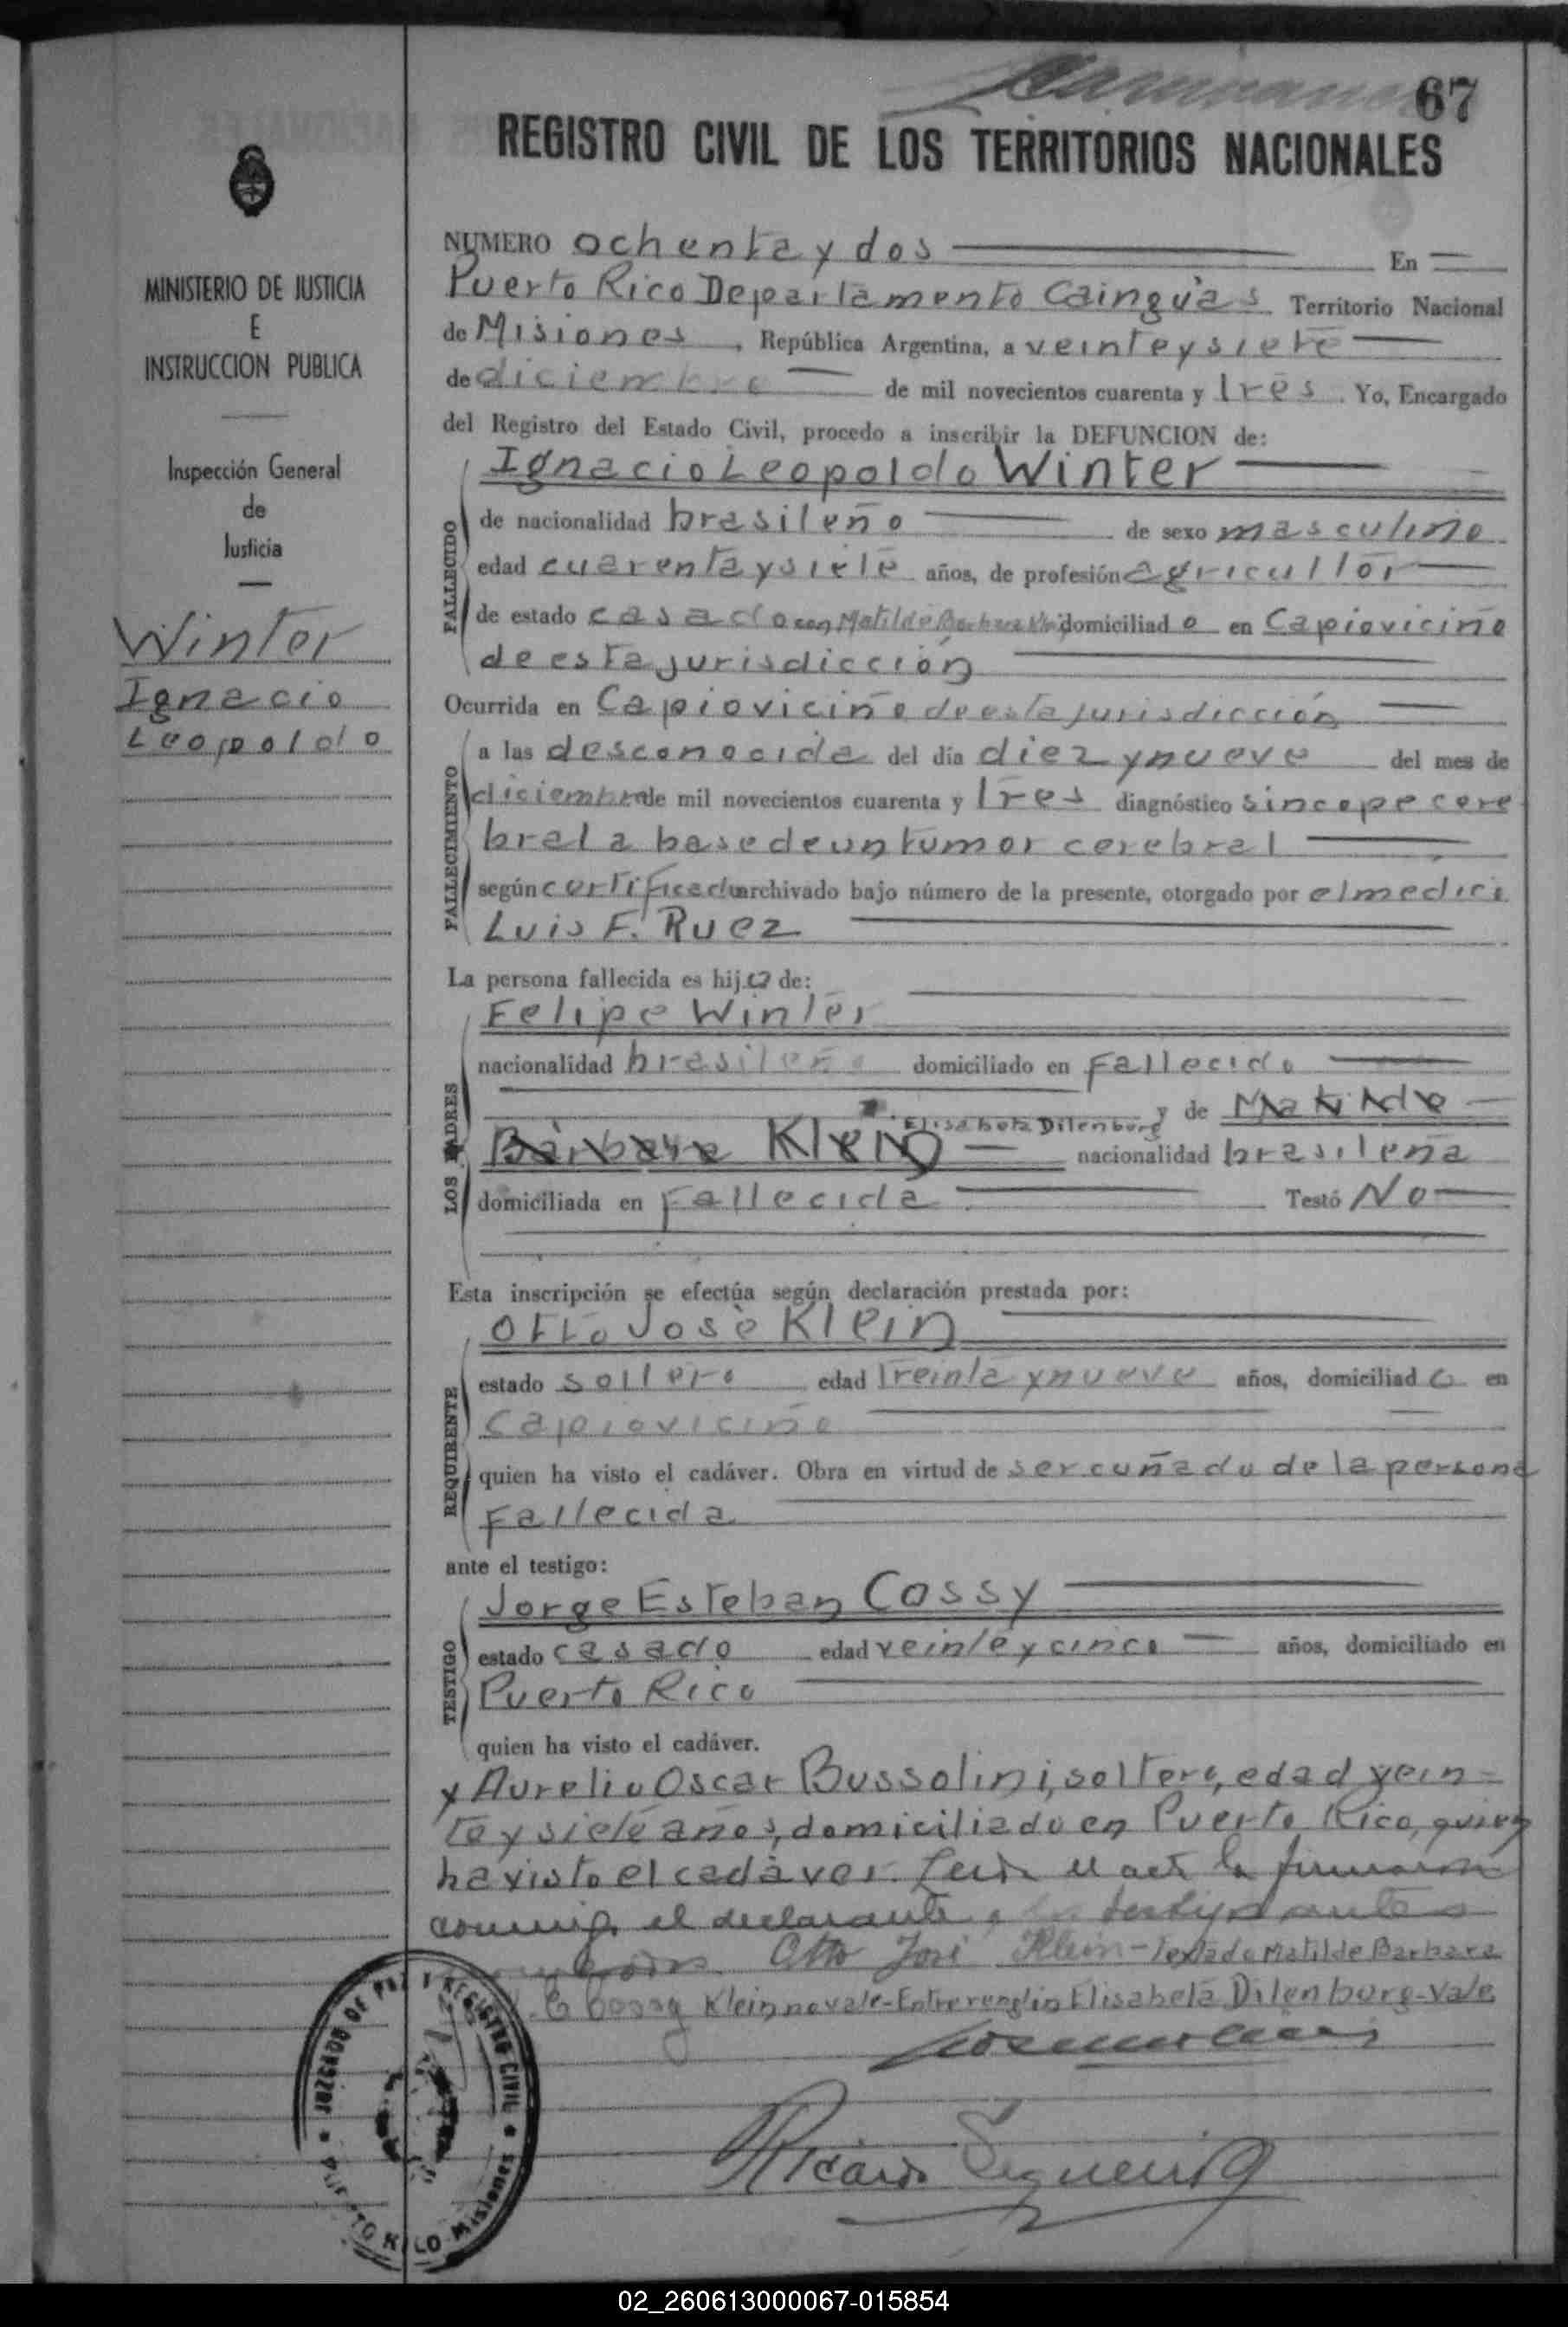 67
REGISTRO CIVIL DE LOS TERRITORIOS NACIONALES
MINISTERIO DE JUSTICIA
E
INSTRUCCION PUBLICA
Inspección General
de
Justicia
Winter
Ignacio
Leopoldo
NUMERO ochenta y dos En
Puerto Rico Departamento Cainguás Territorio Nacional
de Misiones, República Argentina, a veinte y siete
de diciembre de mil novecientos cuarenta y tres. Yo, Encargado
del Registro del Estado Civil, procedo a inscribir la DEFUNCION de:
Ignacio Leopoldo Winter
FALLECIDO
de nacionalidad brasileño de sexo masculino
edad cuarenta y siete años, de profesión agricultor
de estado casado con Matilde Bárbara domiciliado en Capioviciño
de esta jurisdicción
Ocurrida en Capioviciño de esta jurisdicción
FALLECIMIENTO
a las desconocida del día diez y nueve del mes de
diciembre de mil novecientos cuarenta y tres diagnóstico sincope cere
bral a base de un tumor cerebral
según certificado archivado bajo número de la presente, otorgado por el medico
Luis F. Ruez
La persona fallecida es hijo de:
Felipe Winter
LOS PADRES
nacionalidad brasileño domiciliado en Fallecido
y de Matilde
Elisabeta Dilenburg
Bárbara Klein nacionalidad brasileña
domiciliada en Fallecida Testó No
Esta inscripción se efectúa según declaración prestada por:
Otto José Klein
REQUIRENTE
estado soltero edad treinta y nueve años, domiciliado en
Capioviciño
quien ha visto el cadáver. Obra en virtud de ser cuñado de la persona
Fallecida
ante el testigo:
Jorge Esteban Cossy
TESTIGO
estado casado edad veinte y cinco años, domiciliado en
Puerto Rico
quien ha visto el cadáver.
y Aurelio Oscar Bussolini, soltero, edad vein-
te y siete años, domiciliado en Puerto Rico, quien
ha visto el cadáver. Leida el acta la firmaron
conmigo el declarante y los testigos antes
Otto José Klein - Textado Matilde Barbara
Cossy Klein no vale - Entrerenglin Elisabeta Dilenborg - Vale
Ricardo
JUZGADO DE PAZ Y REGISTRO CIVIL
PUERTO RICO Misiones
02_260613000067-015854